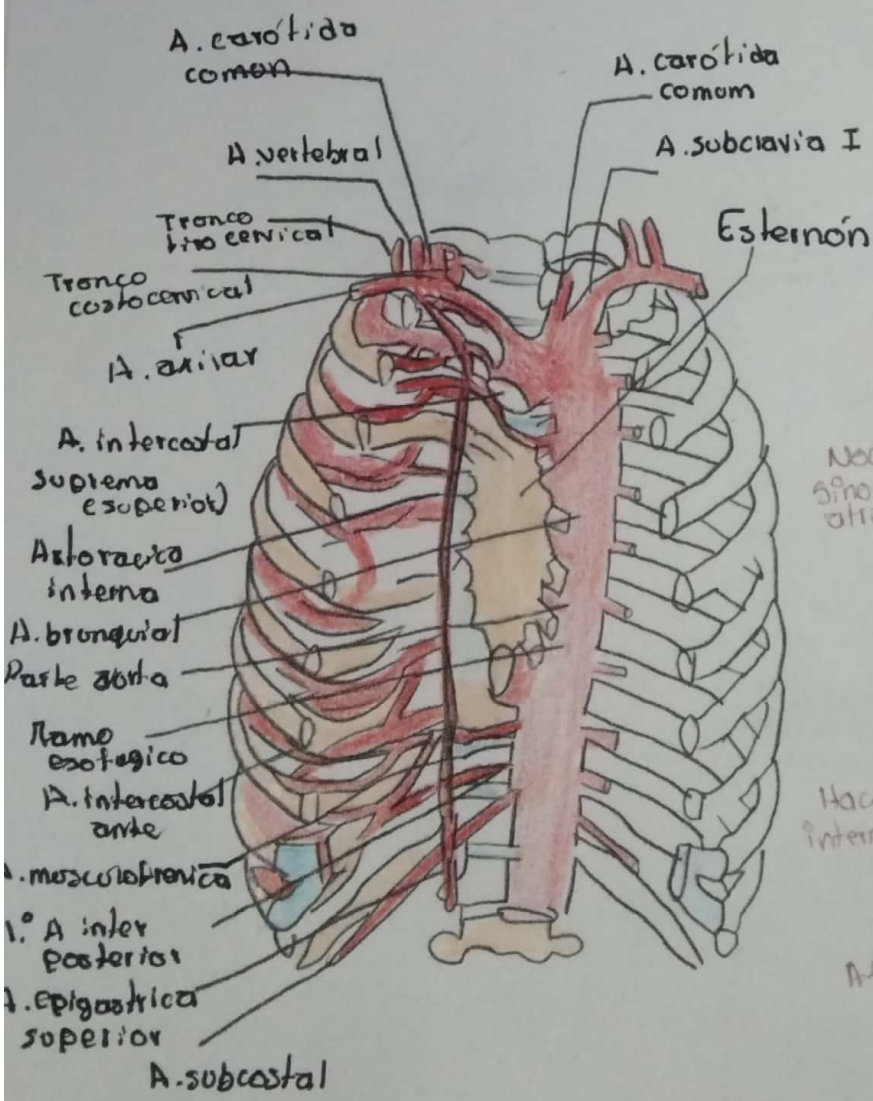 A. carótida
comon
A. carótida
comom
A. vertebral
A. subclavia I
Tronco
tiro cervical
Esternón
Tronco
costocervical
A. axilar
A. intercostal
suprema
esuperior)
interna
A. bronquial
Parte aorta
Ramo
esofagico
A. intercostal
ante
A. musculofrenica
1.º A inter
posterior
A. epigastrica
superior
A. subcostal
sino
Hac
inter